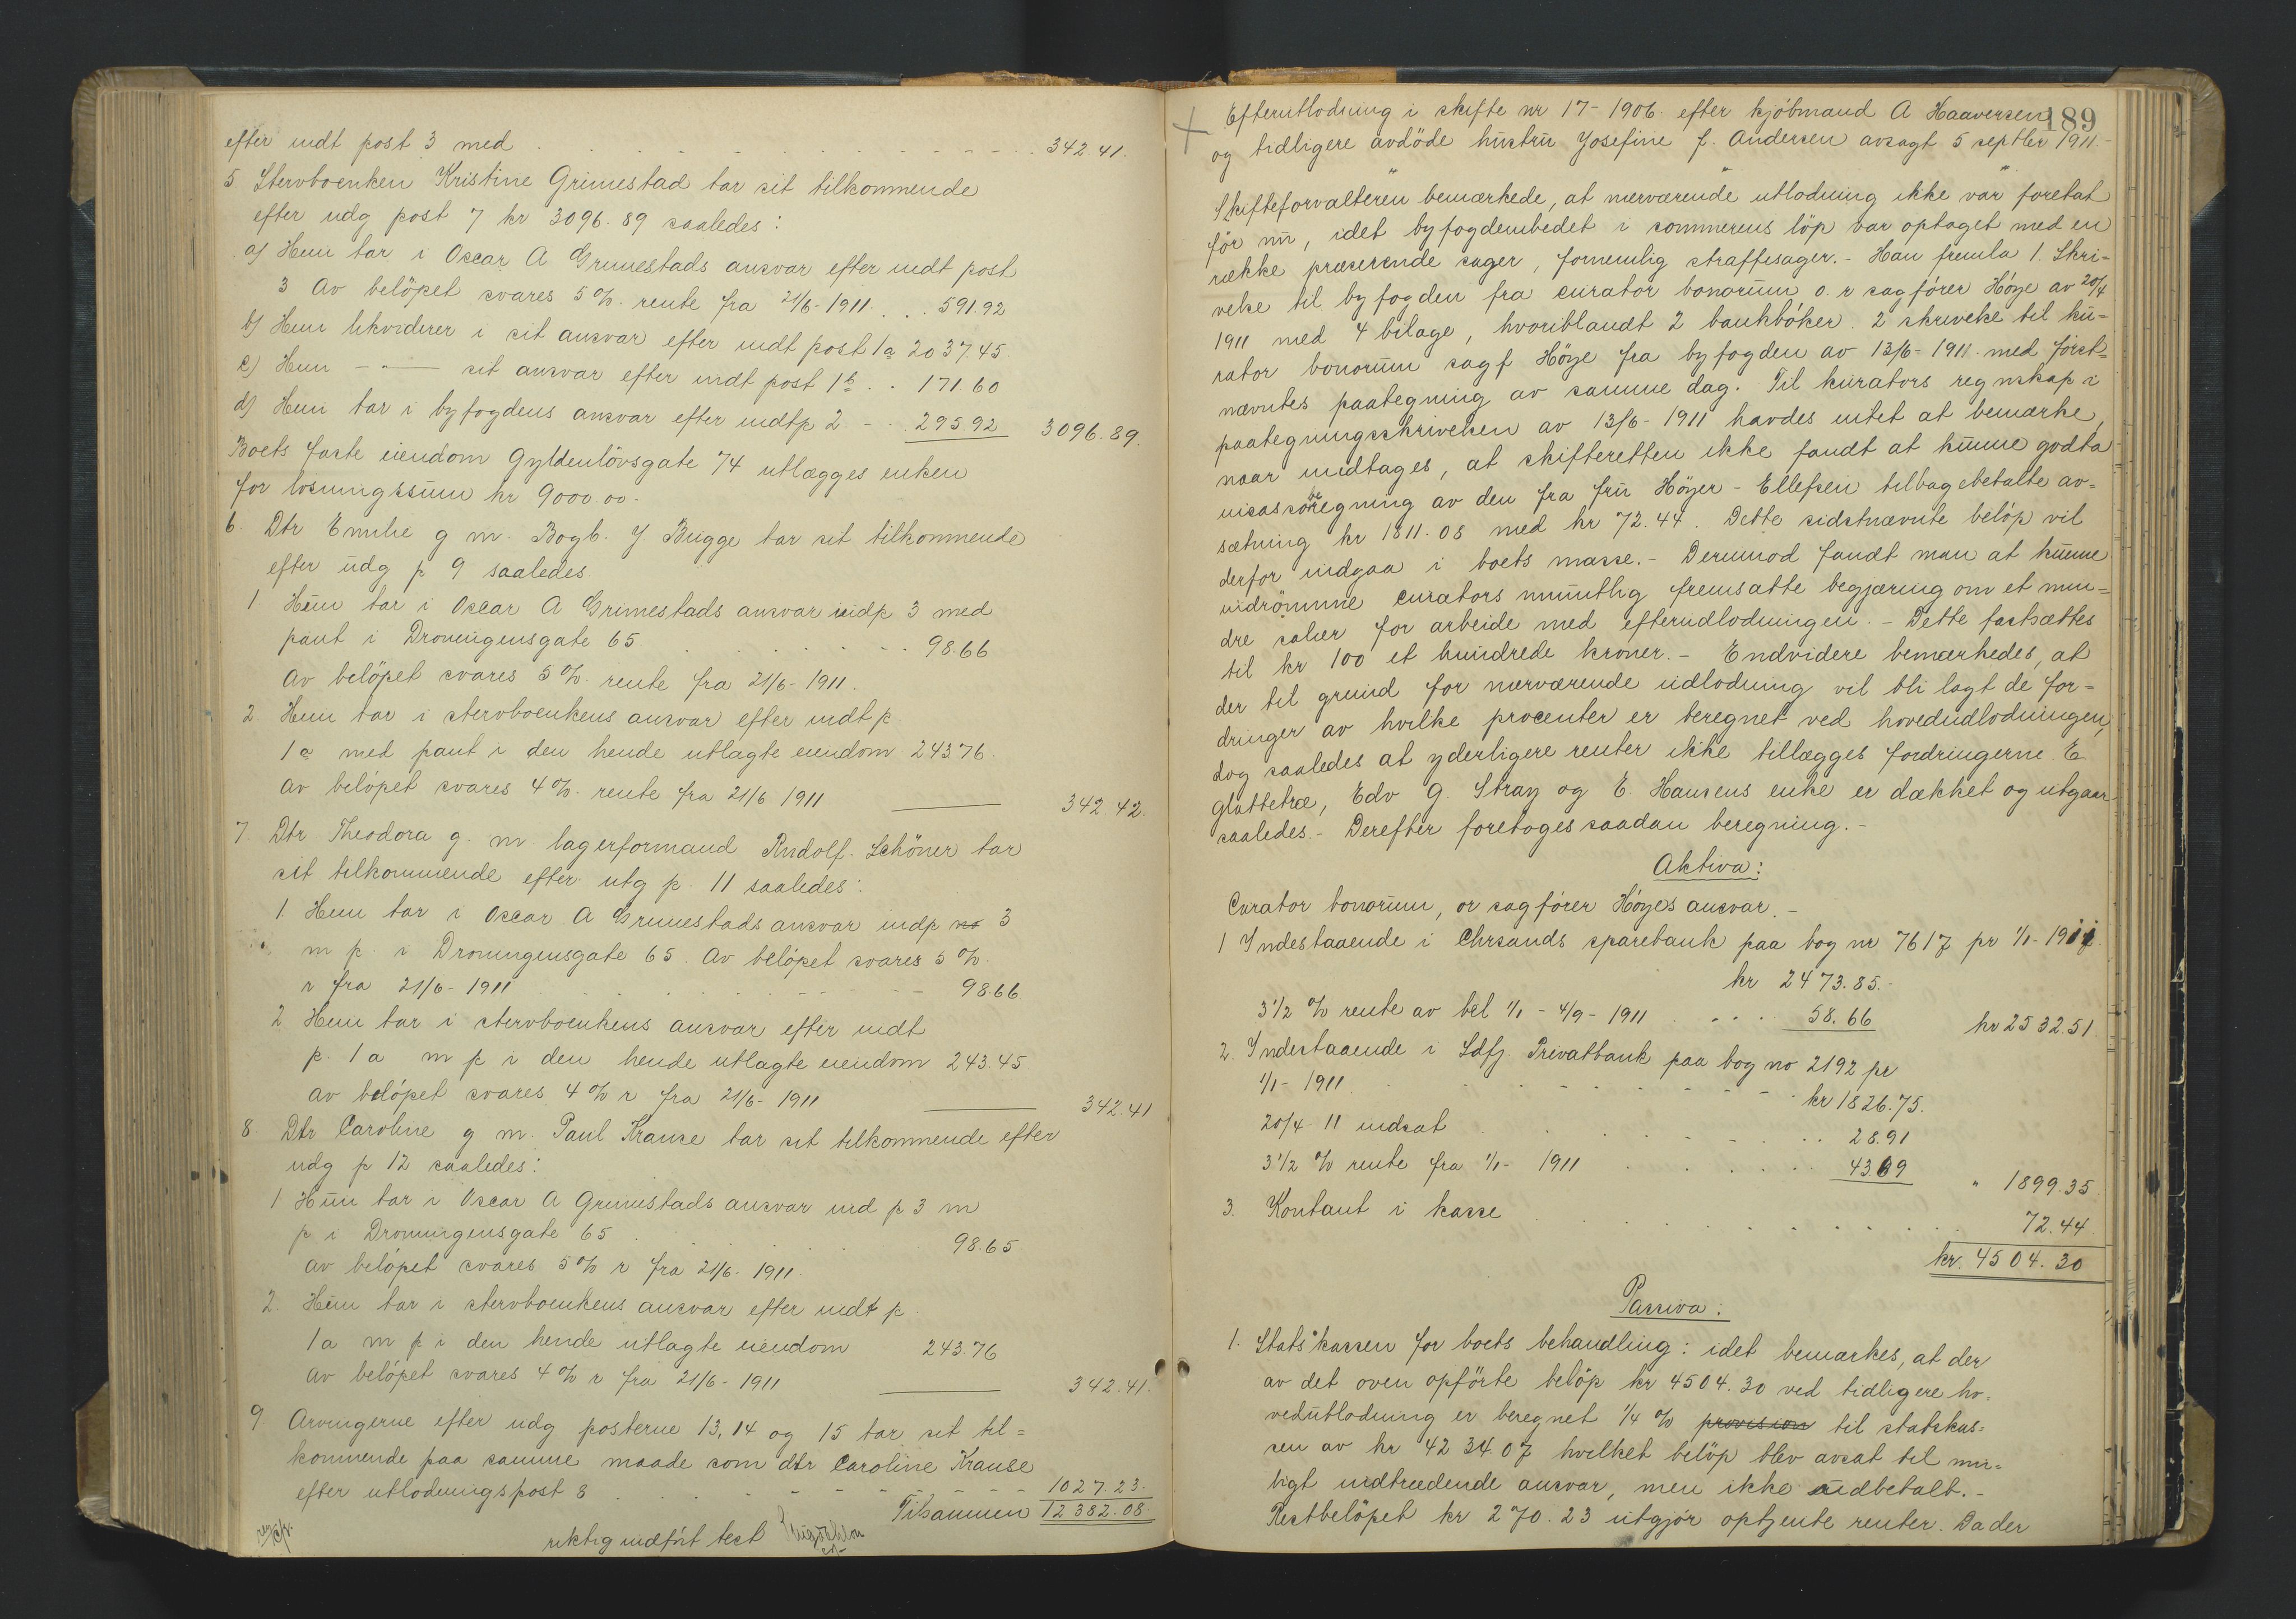 efter indt post 3 med . . . . . . . . . 342 41.
5 Stervboenken Kristine Grimestad tar sit tilkommende
efter udg post 7 kr 3096.89 saaledes:
a) Hun tar i Oscar A Grimestads ansvar efter indt post
3 Av beløpet svares 5 % rente fra 21/6-1911 . . 591.92
b) Hun likviderer i sit ansvar efter indt post 1a 2037.45.
c) Hun - " - sit ansvar efter indt post 1b . . 171.60
d) Hun tar i byfogdens ansvar efter indtp 2 - . 295 92 3096.89.
Boets faste eiendom Gyldenløvsgate 74 utlægges enken
for løsningssum kr 9000.00.
6. Dtr Emilie g m. Bogb. J Bugge tar sit tilkommende
efter udg p 9 saaledes
1 Hun tar i Oscar A Grimestads ansvar indp 3 med
pant i Dronningensgate 65 . . . . . . 98.66
Av beløpet svares 5 % rente fra 21/6-1911.
2 Hun tar i stervboenkens ansvar efter indt p
1a med pant i den hende utlagte eiendom 243 76.
Av beløpet svares 4 % rente fra 21/6 1911 342 42.
7. Dtr Theodora g. m. lagerformand Rudolf Schöner tar
sit tilkommende efter utg p. 11 saaledes:
1. Hun tar i Oscar A Grimestads ansvar indp no 3
m p. i Dronningensgate 65. Av beløpet svares 5 %
r fra 21/6-1911 . . . . . . 98.66
2 Hun tar i stervboenkens ansvar efter indt
p. 1 a m p i den hende utlagte eiendom 243.45
av beløpet svares 4 % r fra 21/6-1911 342.41
8. Dtr Caroline g m. Paul Krause tar sit tilkommende efter
udg p 12 saaledes:
1 Hun tar i Oscar A Grimestads ansvar ind p 3 m
p i Dronningensgate 65 . . . . . . 98.65
av beløpet svares 5 % r fra 21/6-1911.
2. Hun tar i stervboenkens ansvar efter indt p.
1a m p i den hende utlagte eiendom 243.76
av beløpet svares 4 % r fra 21/6-1911 342.41.
9 Arvingerne efter udg posterne 13, 14 og 15 tar sit til=
kommende paa samme maade som dtr Caroline Krause
efter utlodningspost 8 . . . . . . 1027.23.
Tilsammen 12 382.08.
riktig indført test
189
Efterutlodning i skifte nr 17-1906 efter kjøbmand A Haaversen
og tidligere avdøde hustru Josefine f. Andersen avsagt 5 septbr 1911.-
Skifteforvalteren bemærkede, at nærværende utlodning ikke var foretat
før nu, idet byfogdembedet i sommerens løp var optaget med en
række præserende sager, fornemlig straffesager.- Han fremla 1. Skri-
velse til byfogden fra curator bonorum o.r sagfører Høye av 20/4
1911 med 4 bilage, hvoriblandt 2 bankbøker. 2 skrivelse til ku-
rator bonorum sagf Høye fra byfogden av 13/6-1911 med først-
nævntes paategning av samme dag. Til kurators regnskap i
paategningsskrivelsen av 13/6-1911 havdes intet at bemærke,
naar undtages, at skifteretten ikke fandt at kunne godta
incassoberegning av den fra fru Høyer-Ellefsen tilbagebetalte av=
sætning kr 1811.08 med kr 72.44. Dette sidstnævnte beløp vil
derfor indgaa i boets masse.- Derimod fandt man at kunne
indrømme curators mundtlig fremsatte begjæring om et min=
dre salær for arbeide med efterudlodningen.- Dette fastsættes
til kr 100 et hundrede kroner.- Endvidere bemærkedes, at
der til grund for nærværende udlodning vil bli lagt de for=
dringer av hvilke procenter er beregnet ved hovedudlodningen,
dog saaledes at yderligere renter ikke tillægges fordringerne. E
Glattetræ, Edv G. Stray og E. Hansens enke er dækket og utgaar
saaledes.- Derefter foretages saadan beregning.-
Aktiva:
Curator bonorum, or sagfører Høyes ansvar.-
1 Indestaaende i Chrsands sparebank paa bog nr 7617 pr 1/1-1911
kr 2473.85.-
3 1/2 % rente av bel 1/1 - 4/9-1911 . . . . 58.66 kr 2532.51.
2. Indestaaende i Sdfj. Privatbank paa bog no 2192 pr
1/1-1911 . . . . . . kr 1826.75.
20/4-11 indsat . . . . . . 28.91
3 1/2 % rente fra 1/1-1911 . . . . . . 43.69 " 1899.35
3. Kontant i kasse . . . . . . 72.44
kr. 4504.30
Passiva:
1. Statskassen for boets behandling: idet bemærkes, at der
av det oven opførte beløp kr 4504.30 ved tidligere ho-
vedutlodning er beregnet 1/4 % provision til statskas=
sen av kr 4234.07 hvilket beløp blev avsat til mu=
ligt indtrædende ansvar, men ikke udbetalt.-
Restbeløpet kr 270.23 utgjør optjente renter. Da der